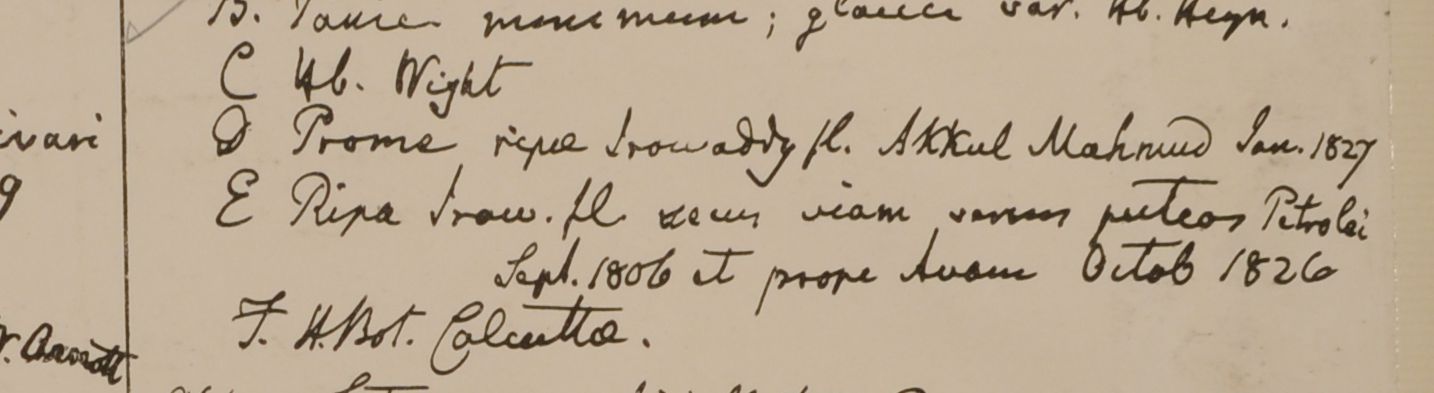 B. monimum; glauca var. Hb. Heyn.
C Hb. Wight
ivari D Prome ripæ Irowaddy fl. Akkul Mahmud Jan. 1827
9 E Ripa Iraw. fl. secus viam versus puteos Petrolei
Sept. 1806 et prope Avam Octob 1826
F. H. Bot. Calcuttæ.
Arnott